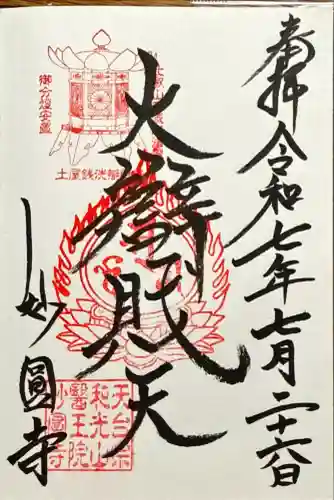 奉拝 令和七年七月二十六日
大辯財天
妙圓寺
御分燈安置
土屋銭洗
天台宗
和光山
醫王院
妙圓寺